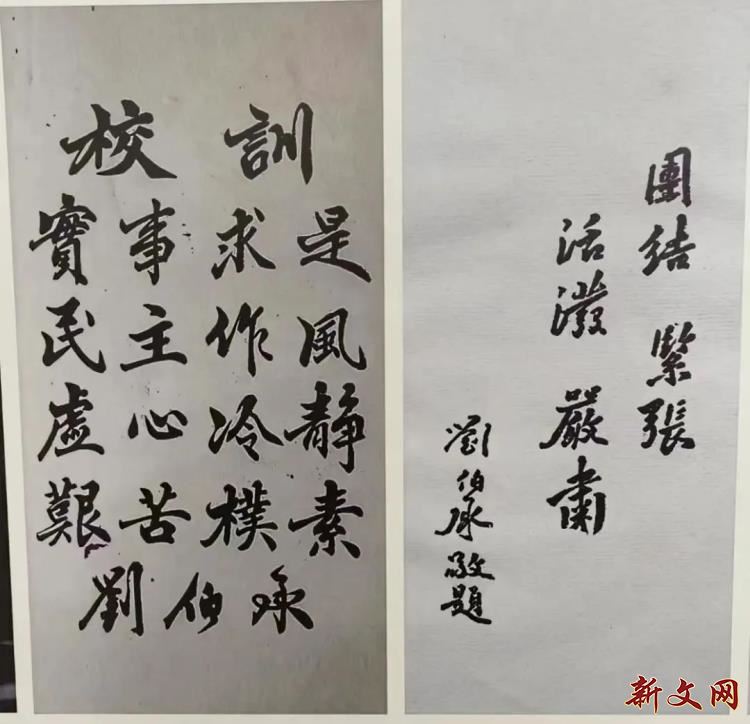 校訓
實事求是
民主作風
虛心冷靜
艱苦樸素
劉伯承
團結 緊張
活潑 嚴肅
劉伯承敬題
新文网